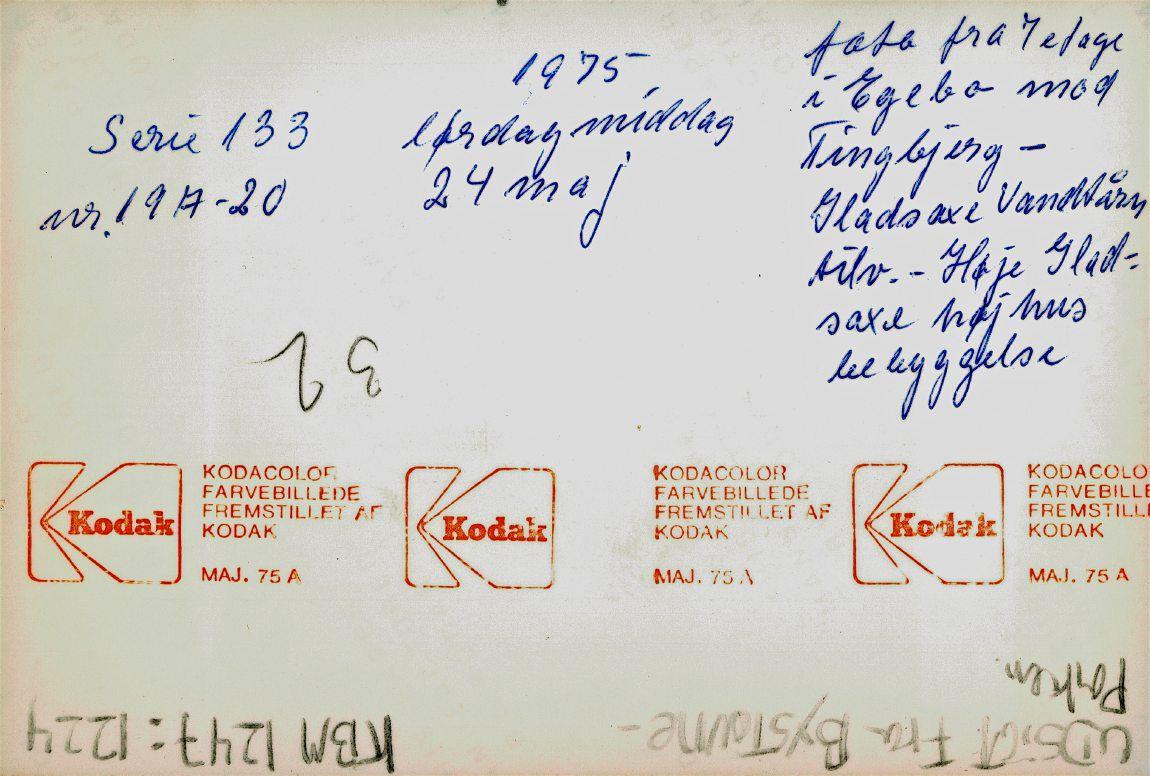 1975
lørdag middag
24 maj
Serie 133
nr. 19 A-20
foto fra 7 etage
i Egebo mod
Tingbjerg –
Gladsaxe Vandtårn
tilv. – Høje Glad=
saxe højhus
bebyggelse
Kodak
KODACOLOR
FARVEBILLEDE
FREMSTILLET AF
KODAK
MAJ. 75 A
Kodak
KODACOLOR
FARVEBILLEDE
FREMSTILLET AF
KODAK
MAJ. 75 A
Kodak
KODACOLO
FARVEBILLE
FREMSTILL
KODAK
MAJ. 75 A
UDSigt Fra BysTAVNe-
Parken
KBM 1247:1224